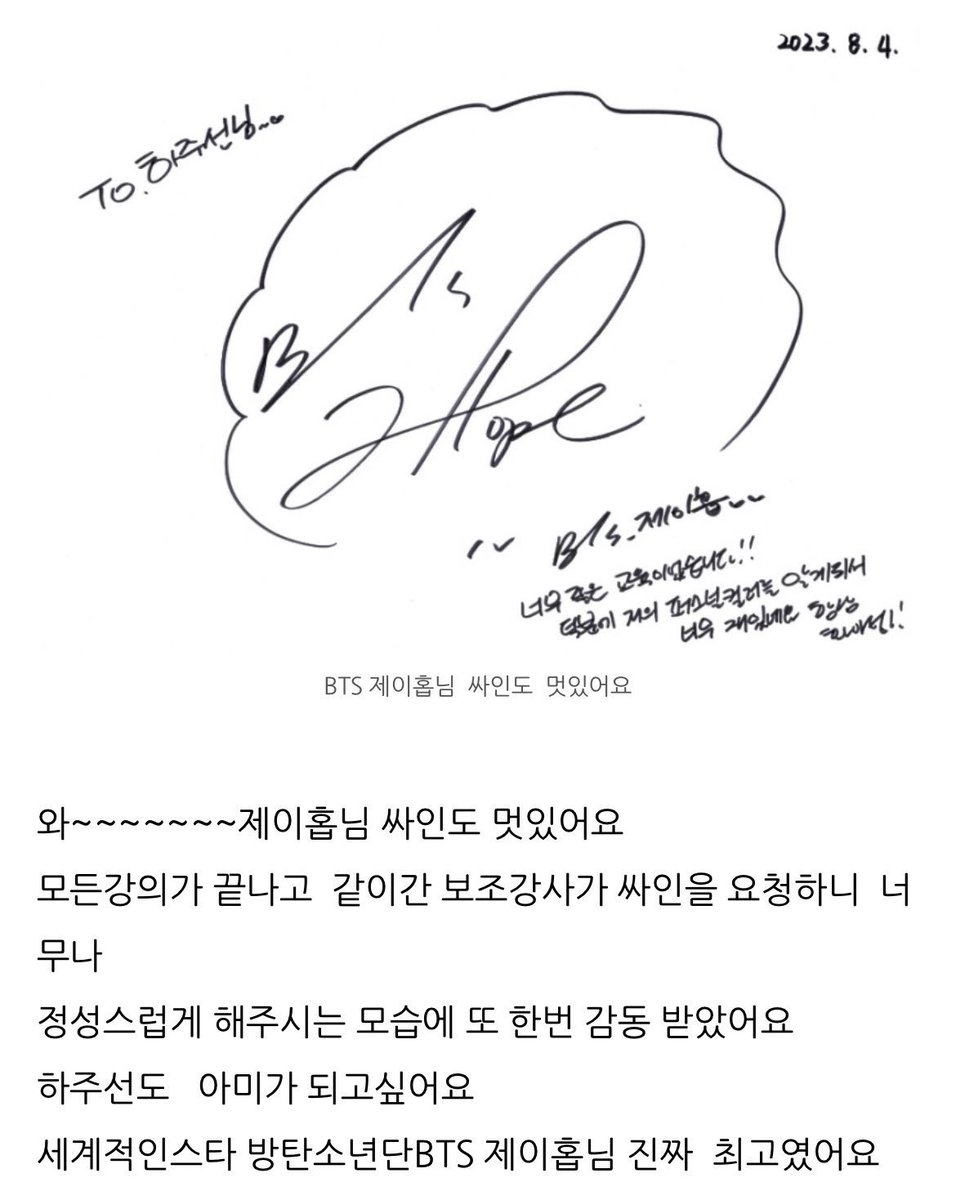 2023. 8. 4.
To. 하주선님~
BTs
J Hope
BTs. 제이홉
너무 좋은 교육이었습니다!!
덕분에 저의 퍼스널컬러를 알게되서
너무 재밌네요
BTS 제이홉님 싸인도 멋있어요
와~~~~~~~제이홉님 싸인도 멋있어요
모든강의가 끝나고 같이간 보조강사가 싸인을 요청하니 너
무나
정성스럽게 해주시는 모습에 또 한번 감동 받았어요
하주선도 아미가 되고싶어요
세계적인스타 방탄소년단BTS 제이홉님 진짜 최고였어요